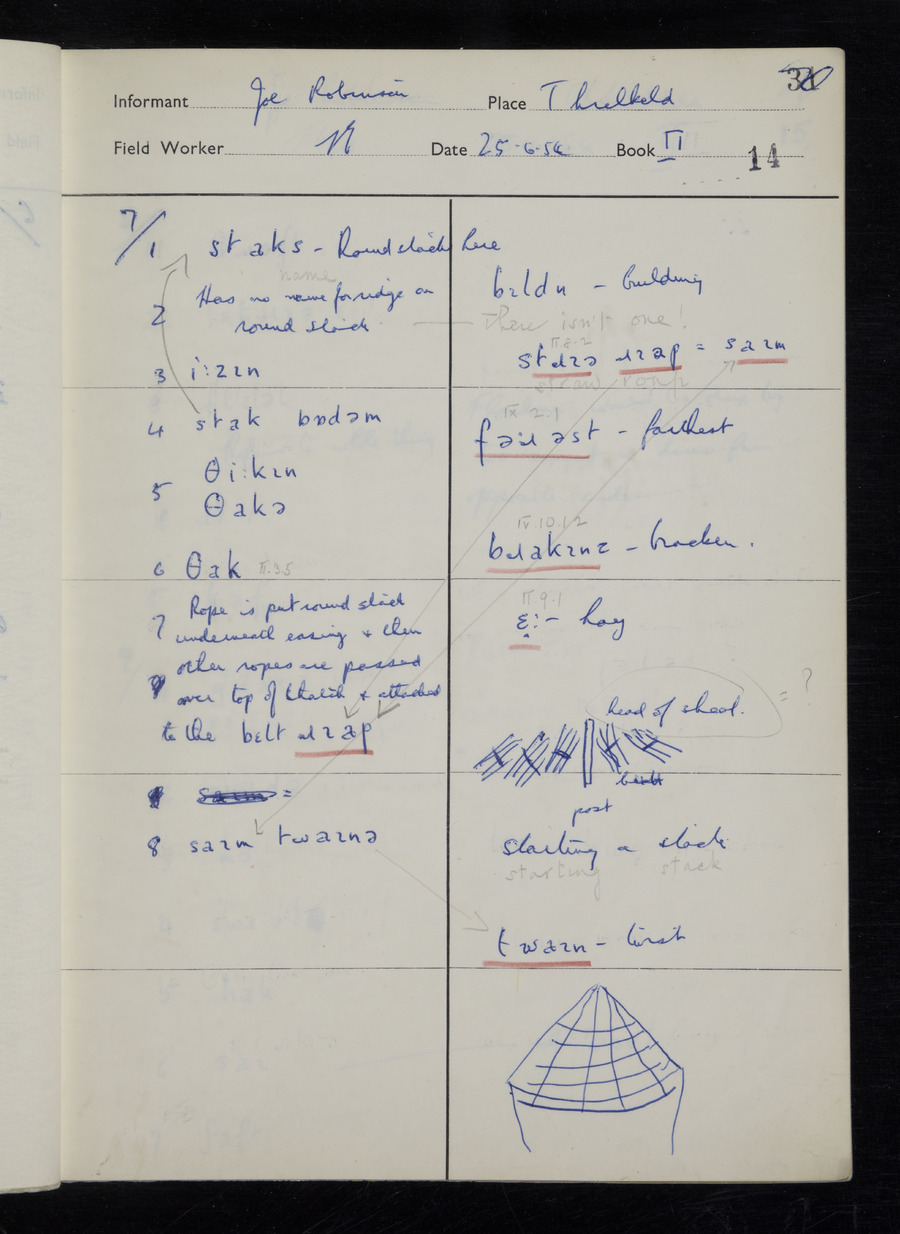 30
Informant Joe Robinson Place Threlkeld
Field Worker Date 25-6-54 Book II 14
7/1 staks - Round stack here
name
2 Has no name for ridge on
round stack.
3 i:zɪn
4 stak bɒdəm
5 θi:kɪn
θakə
6 θak II.3.5
7 Rope is put round stack
underneath easing & then
other ropes are passed
over top of thatch & attached
to the belt ɹɪəp
8 saɪm twaɪnə
bɪldn - building
There isn't one!
II.8.2
stɹɪə ɹɪəp = saɪm
straw rope
IX 2.1
fəɹəst - farthest
IV.10.12
bɹakɪnz - bracken.
II.9.1
ɛ̣: - hay
head of sheaf. = ?
butt
post
starting a stack
starting stack
twaɪn - twist